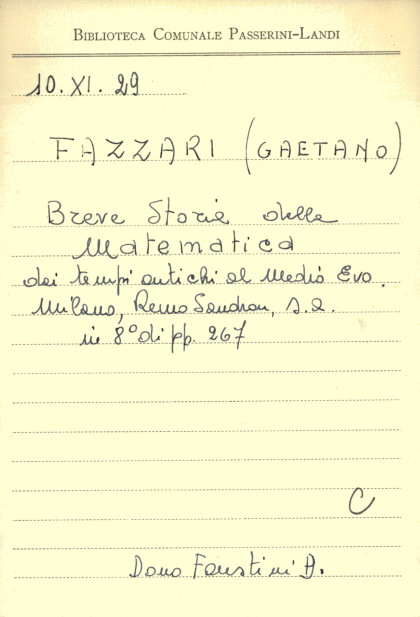 BIBLIOTECA COMUNALE PASSERINI-LANDI
10.XI.29
FAZZARI (GAETANO)
Breve Storia della
Matematica
dai tempi antichi al Medio Evo.
Milano, Remo Sandron, s.a.
in 8° di pp. 267
C
Dono Faustini A.